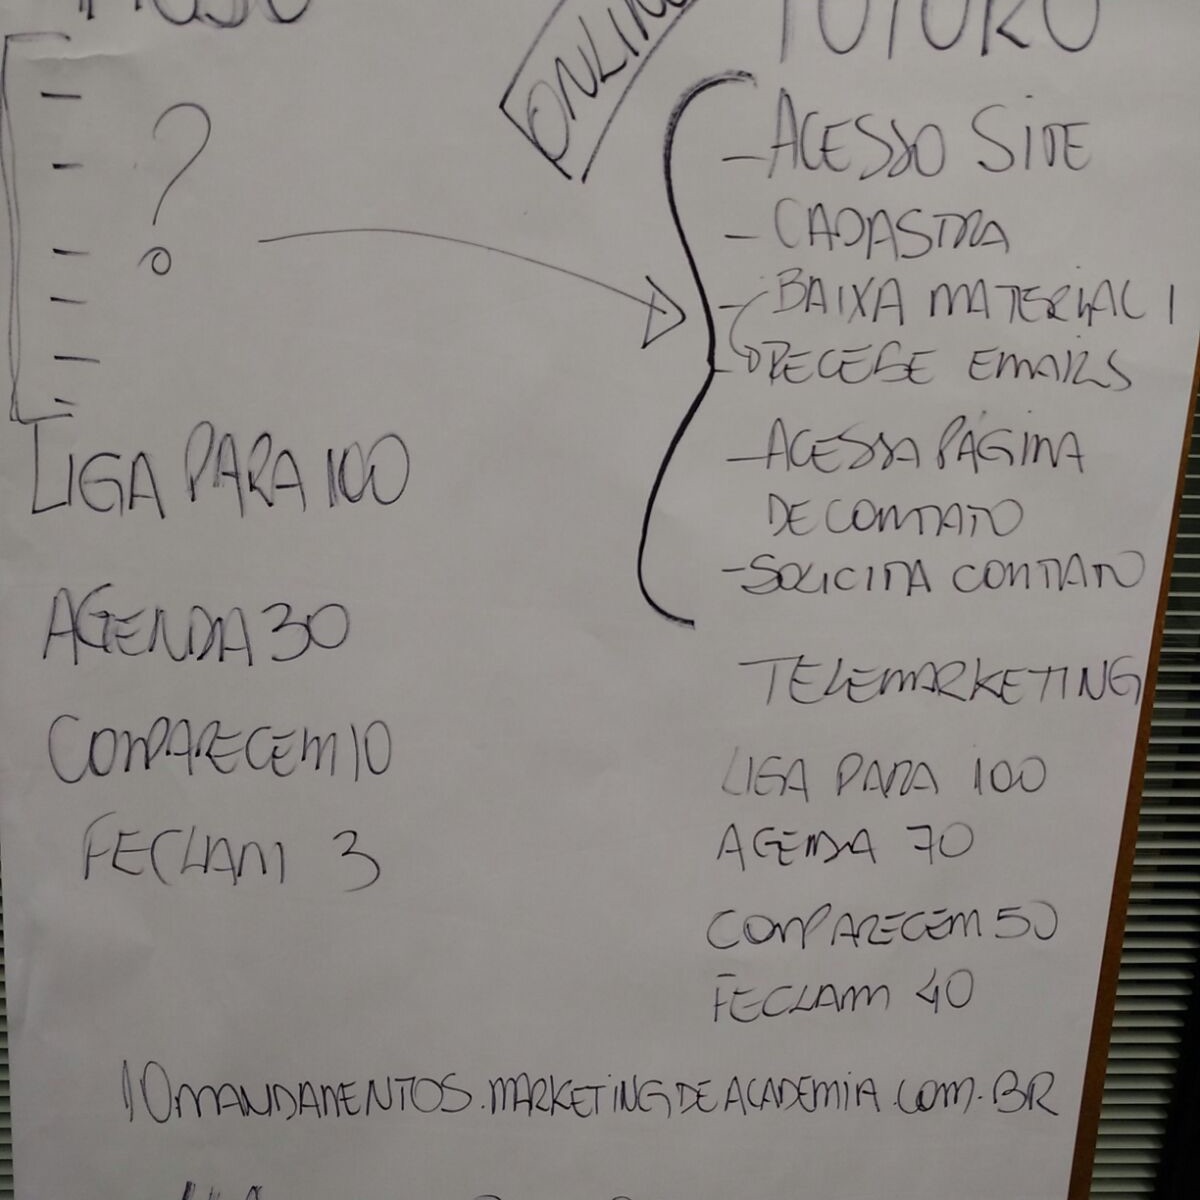 FUTURO
?
- ACESSO SITE
- CADASTRA
- BAIXA MATERIAL 1
- RECEBE EMAILS
- ACESSA PÁGINA
DE CONTATO
- SOLICITA CONTATO
LIGA PARA 100
AGENDA 30
COMPARECEM 10
FECHAM 3
TELEMARKETING
LIGA PARA 100
AGENDA 70
COMPARECEM 50
FECHAM 40
10MANDAMENTOS.MARKETINGDEACADEMIA.COM.BR